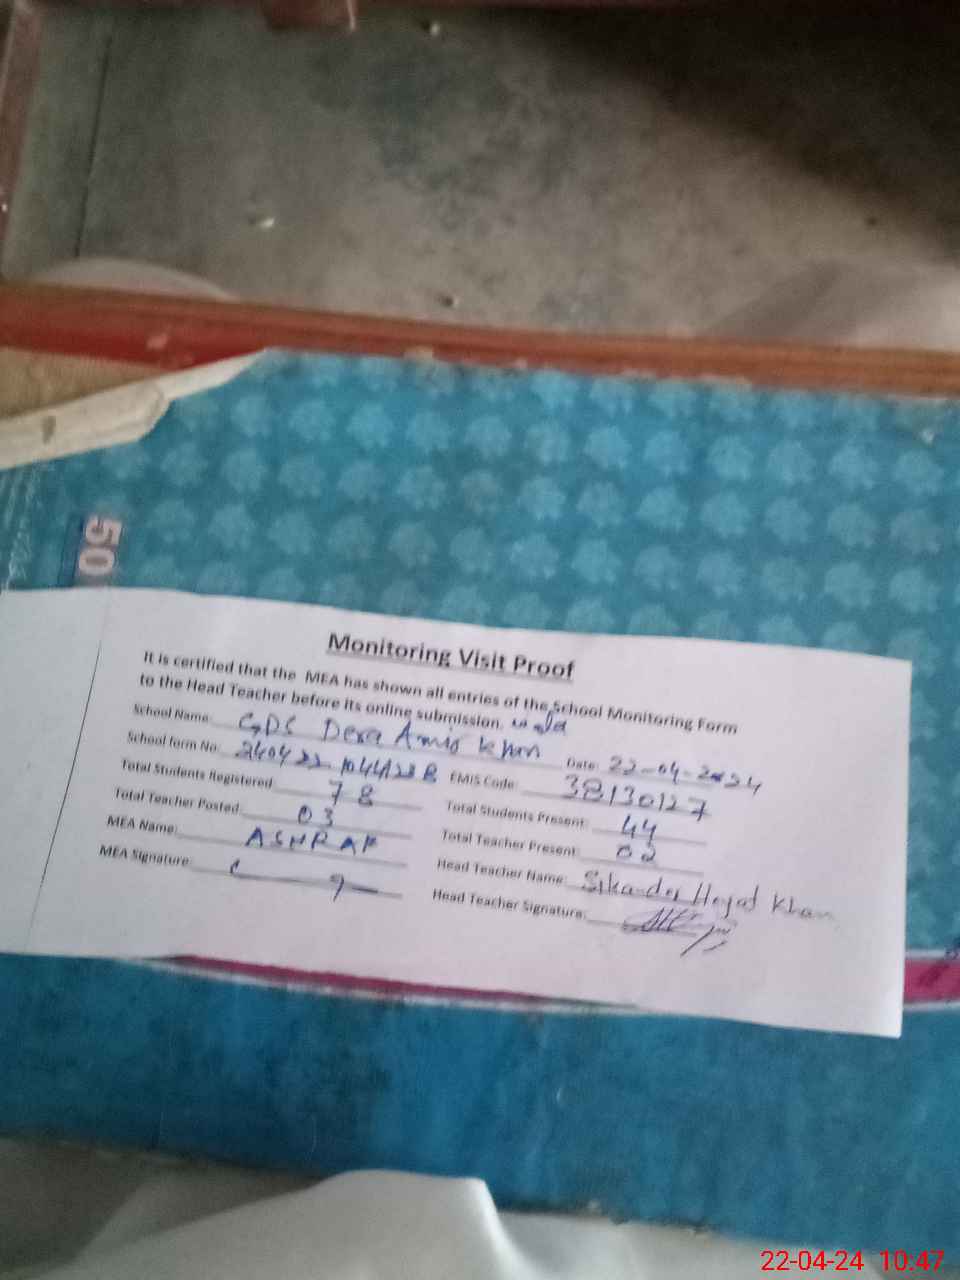 50
Monitoring Visit Proof
It is certified that the MEA has shown all entries of the School Monitoring Form
to the Head Teacher before its online submission.
School Name: GPS Dera Amir Khan wala Date: 22-04-2024
School form No: EMIS Code: 38130127
Total Students Registered: 78 Total Students Present: 44
Total Teacher Posted: 03 Total Teacher Present: 02
MEA Name: ASHRAF Head Teacher Name: Sikander Hayat Khan
MEA Signature: Head Teacher Signature:
22-04-24 10:47